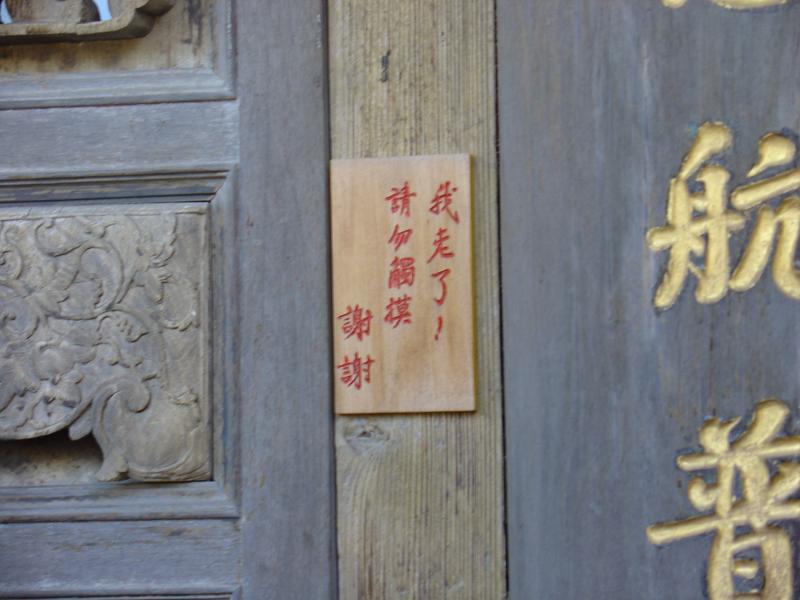 航普
我老了!
請勿觸摸
謝謝